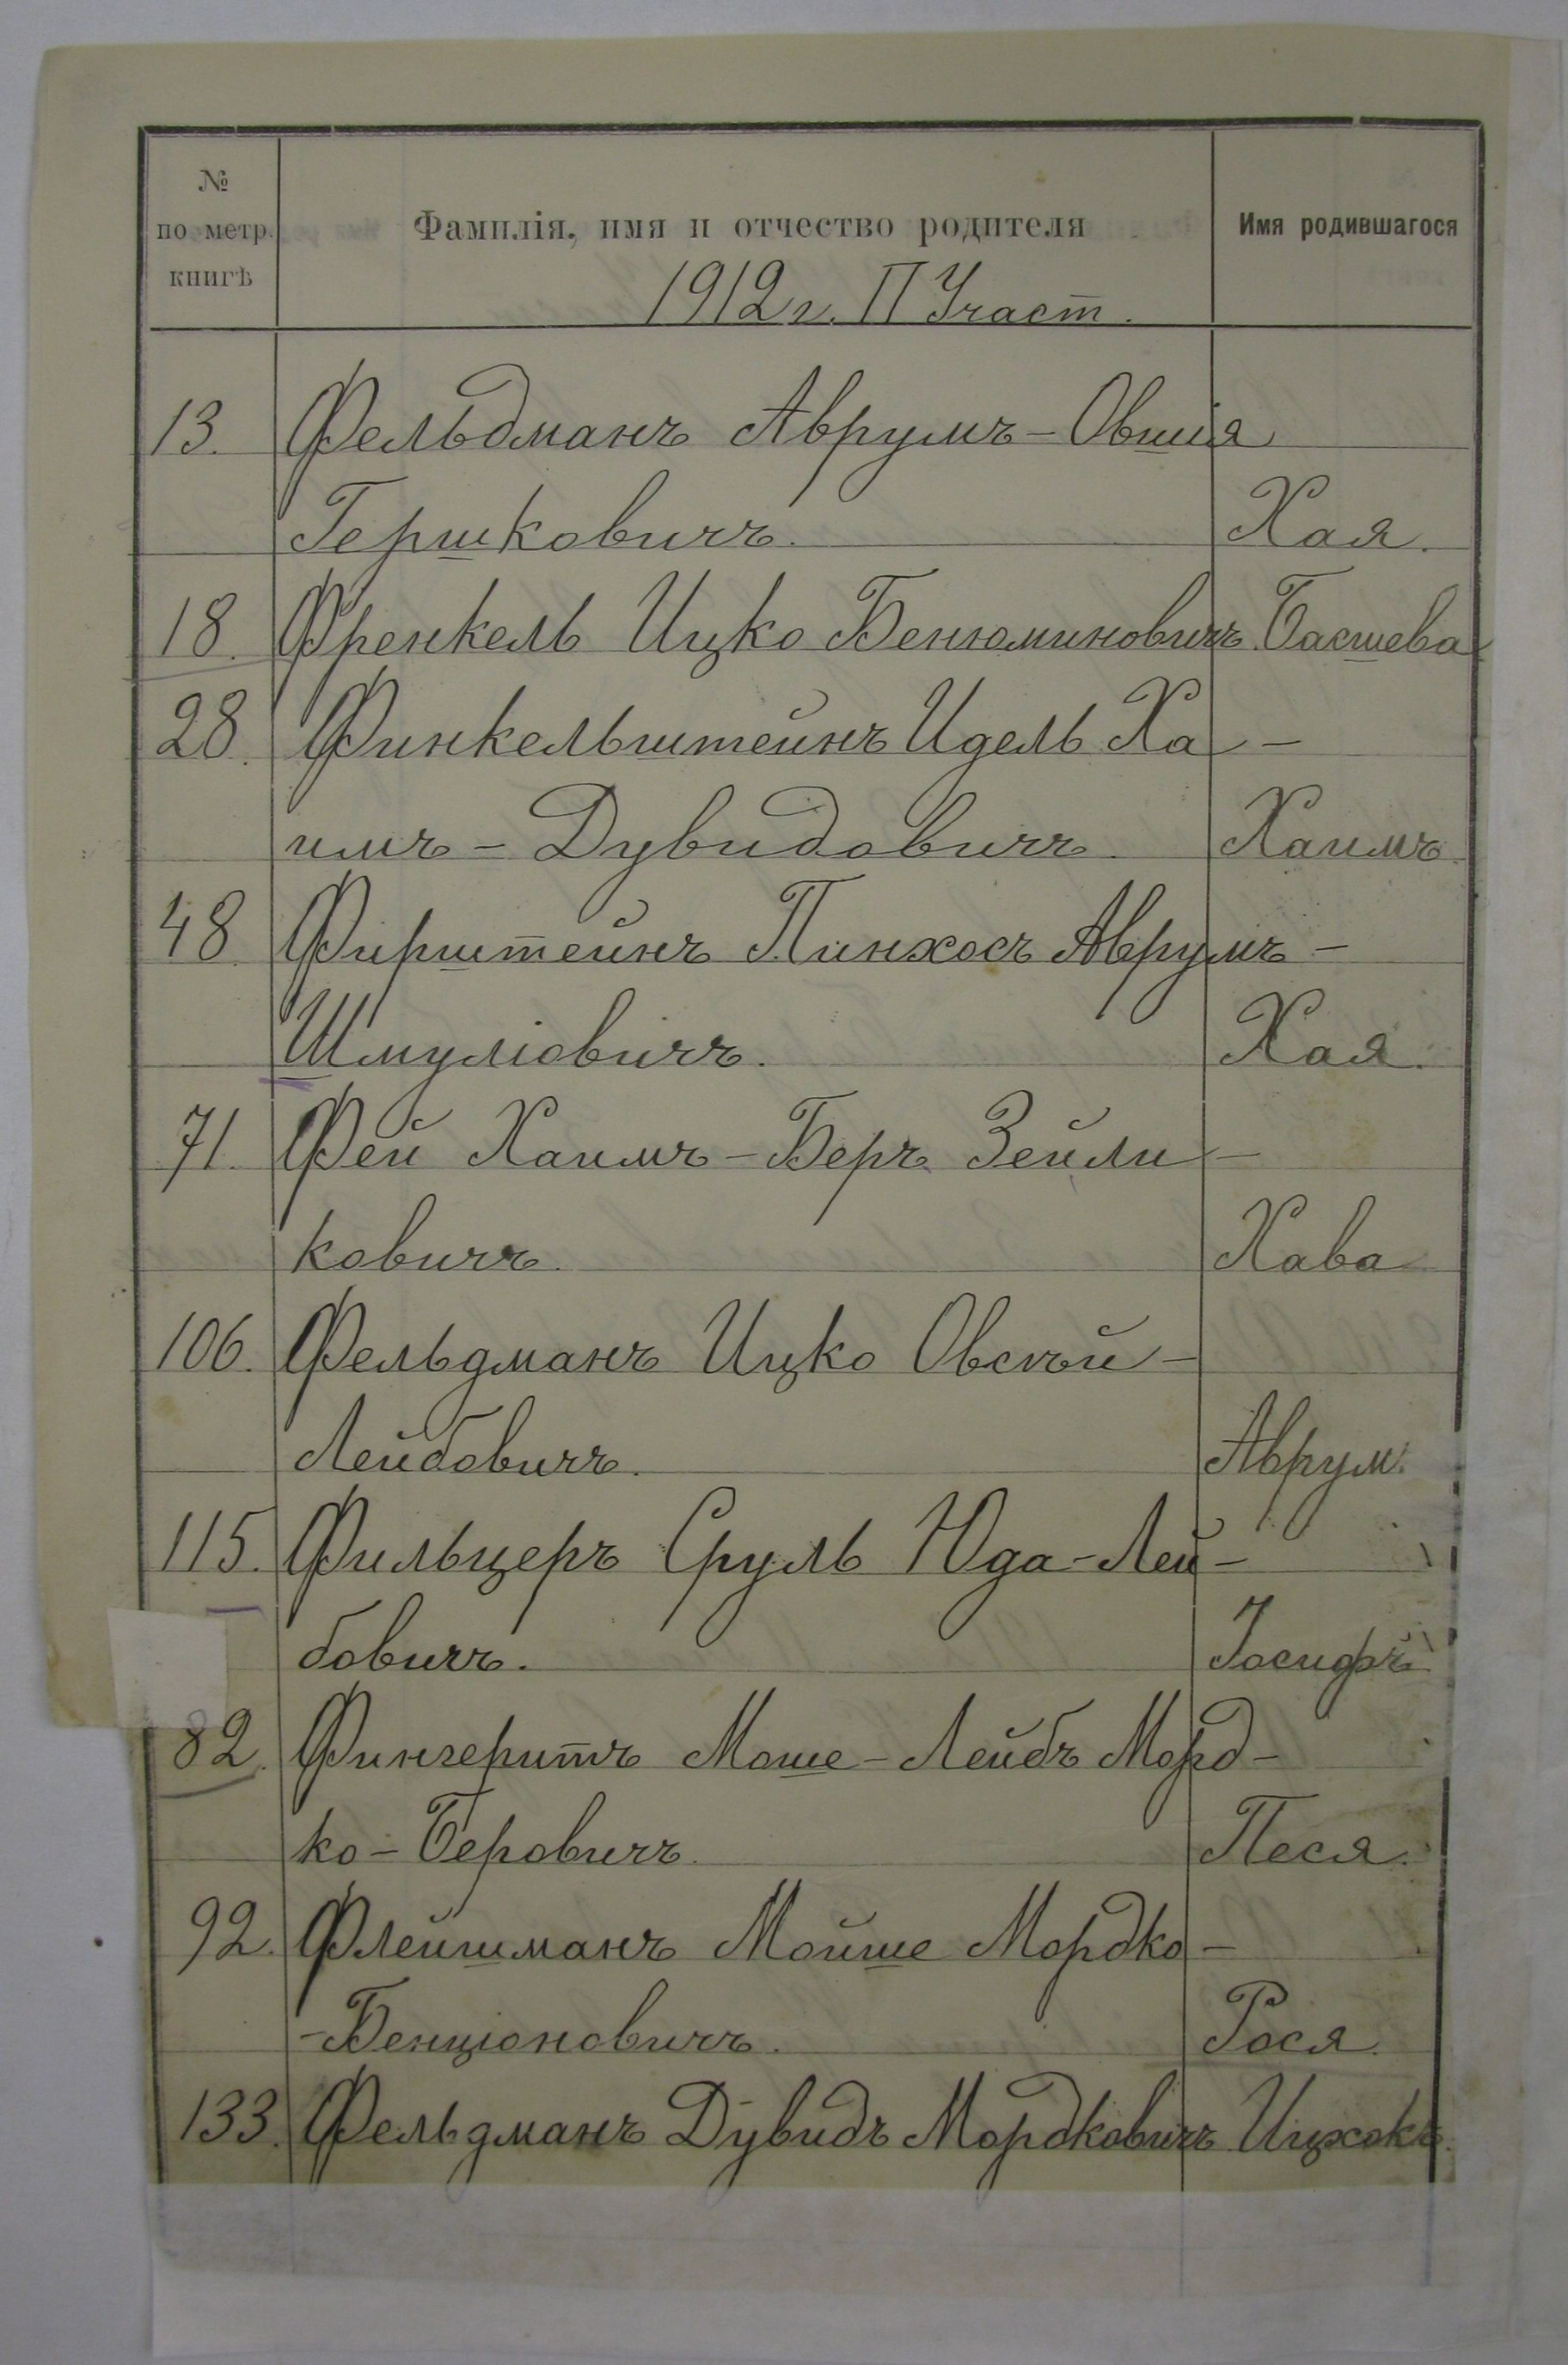 №
по метр.
книгѣ
Фамилія, имя и отчество родителя
Имя родившагося
1912 г. II Участ.
13. Фельдманъ Аврумъ-Овшія
Гершковичъ. Хая.
18. Френкель Ицко Бенюминовичъ Басшева
28. Финкельштейнъ Идель Ха-
имъ-Дувидовичъ. Хаимъ.
48. Фирштейнъ Пинхосъ Аврумъ-
Шмуліовичъ. Хая.
71. Фей Хаимъ-Беръ Зейли-
ковичъ. Хава
106. Фельдманъ Ицко Овсѣй-
Лейбовичъ. Аврум.
115. Фильцеръ Сруль Юда-Лей-
бовичъ. Іосифъ
82. Фингеритъ Моше-Лейбъ Морд-
ко-Беровичъ. Песя.
92. Флейшманъ Мойше Мордко-
-Бенціоновичъ. Рося.
133. Фельдманъ Дувидъ Мордковичъ Ицхокъ.